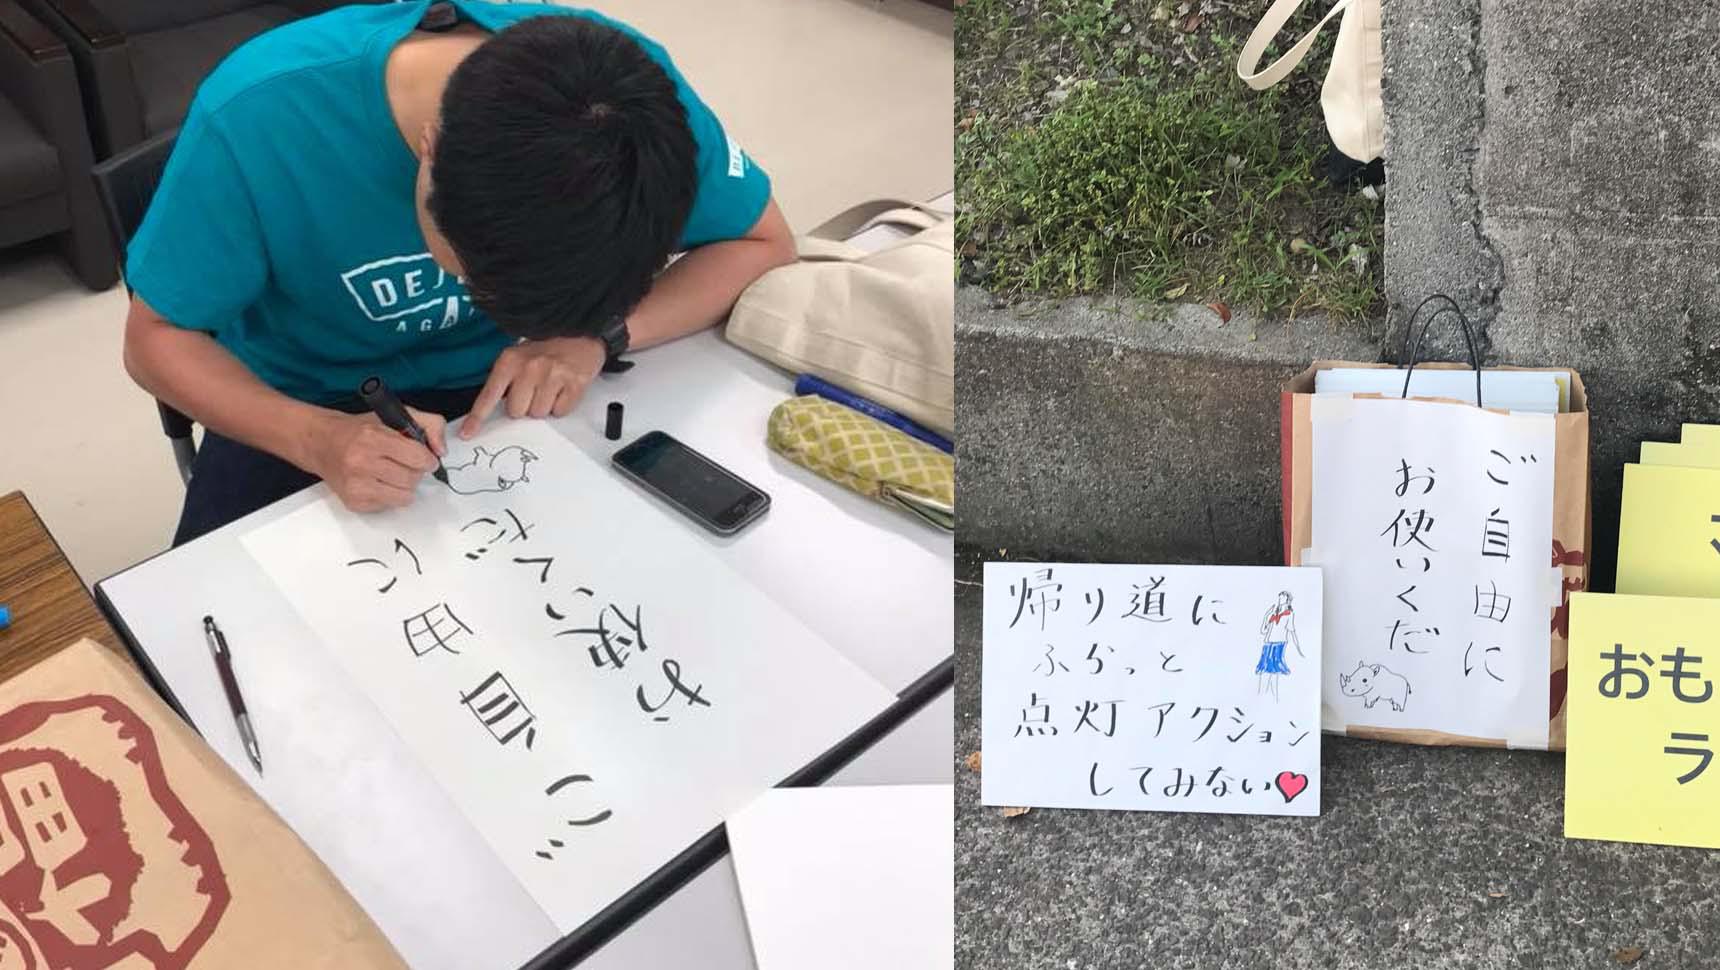 ご自由に
お使いくだ
ご自由に
お使いくだ
帰り道に
ふらっと
点灯アクション
してみない
おも
ラ